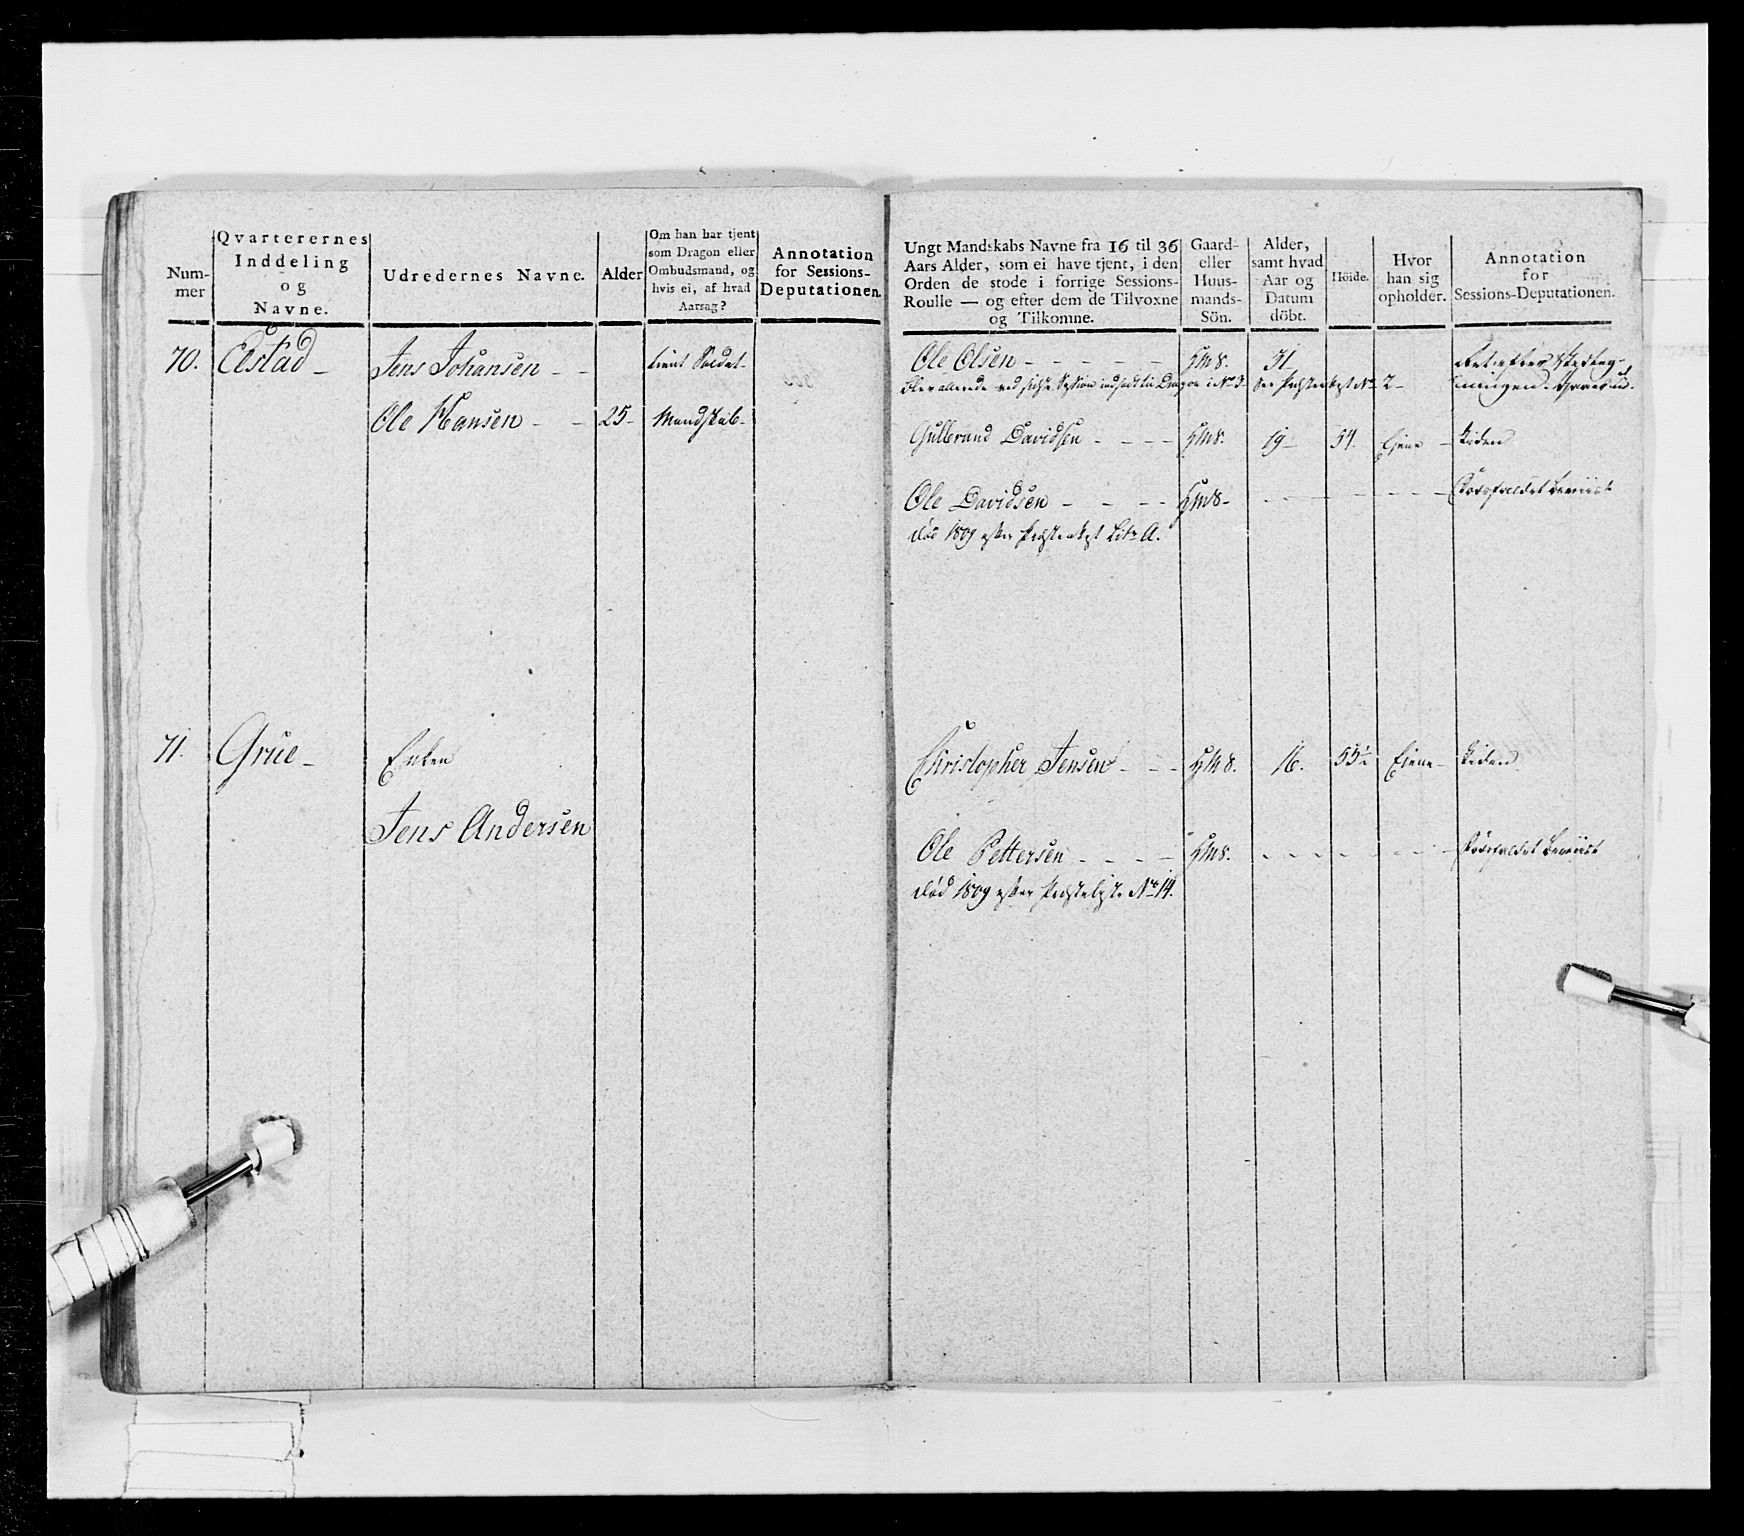 Num-
mer
Qvarterernes
Inddeling
og
Navne.
Udredernes Navne.
Alder
Om han har tjent
som Dragon eller
Ombudsmand, og
hvis ei, af hvad
Aarsag?
Annotation
for Sessions-
Deputationen.
70. Elstad -
Jens Johansen - -
tient Soldat -
Ole Hansen - - 25 - Mandskab -
71. Grue -
Enken
Jens Andersen
Ungt Mandskabs Navne fra 16 til 36
Aars Alder, som ei have tjent, i den
Orden de stode i forrige Sessions-
Roulle — og efter dem de Tilvoxne
og Tilkomne.
Gaard-
eller
Huus-
mands-
Sön.
Alder,
samt hvad
Aar og
Datum
döbt.
Höide.
Hvor
han sig
opholder.
Annotation
for
Sessions-Deputationen.
Ole Olsen - - - - - - HmS. 31
blev allerede ved sidste Session indsadt til Dragon i No 3. See No 2 -
Gulbrand Davidsen - - - - HmS. 19 - 54. Ejene - Liden
Ole Davidsen - - - - HmS - - - - - - - - Dødsfaldet beviist
død 1809 efter Litr A.
Christopher Jensen - - - HMS. 16. 55½ Ejene - Liden
Ole Pettersen - - - - HmS. - - - - - - - Dødsfaldet beviist
død 1809 efter No 14.